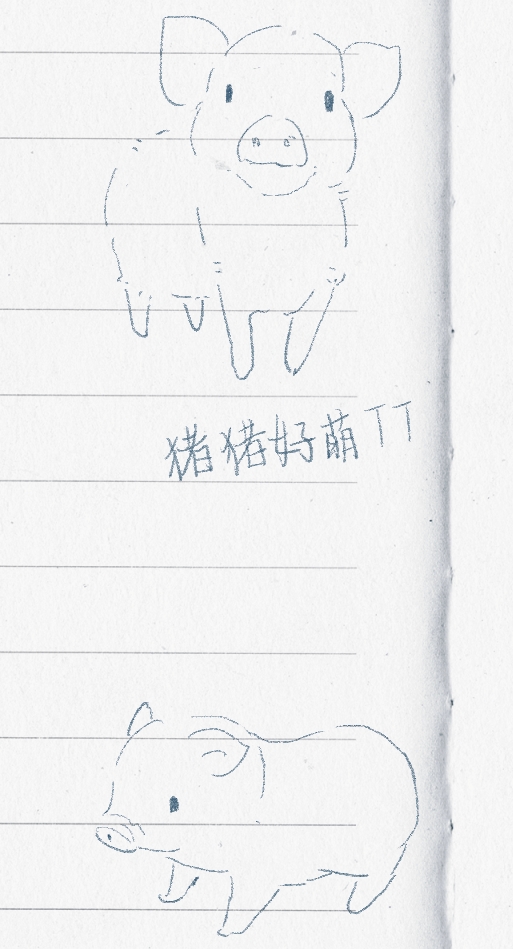 猪猪好萌TT